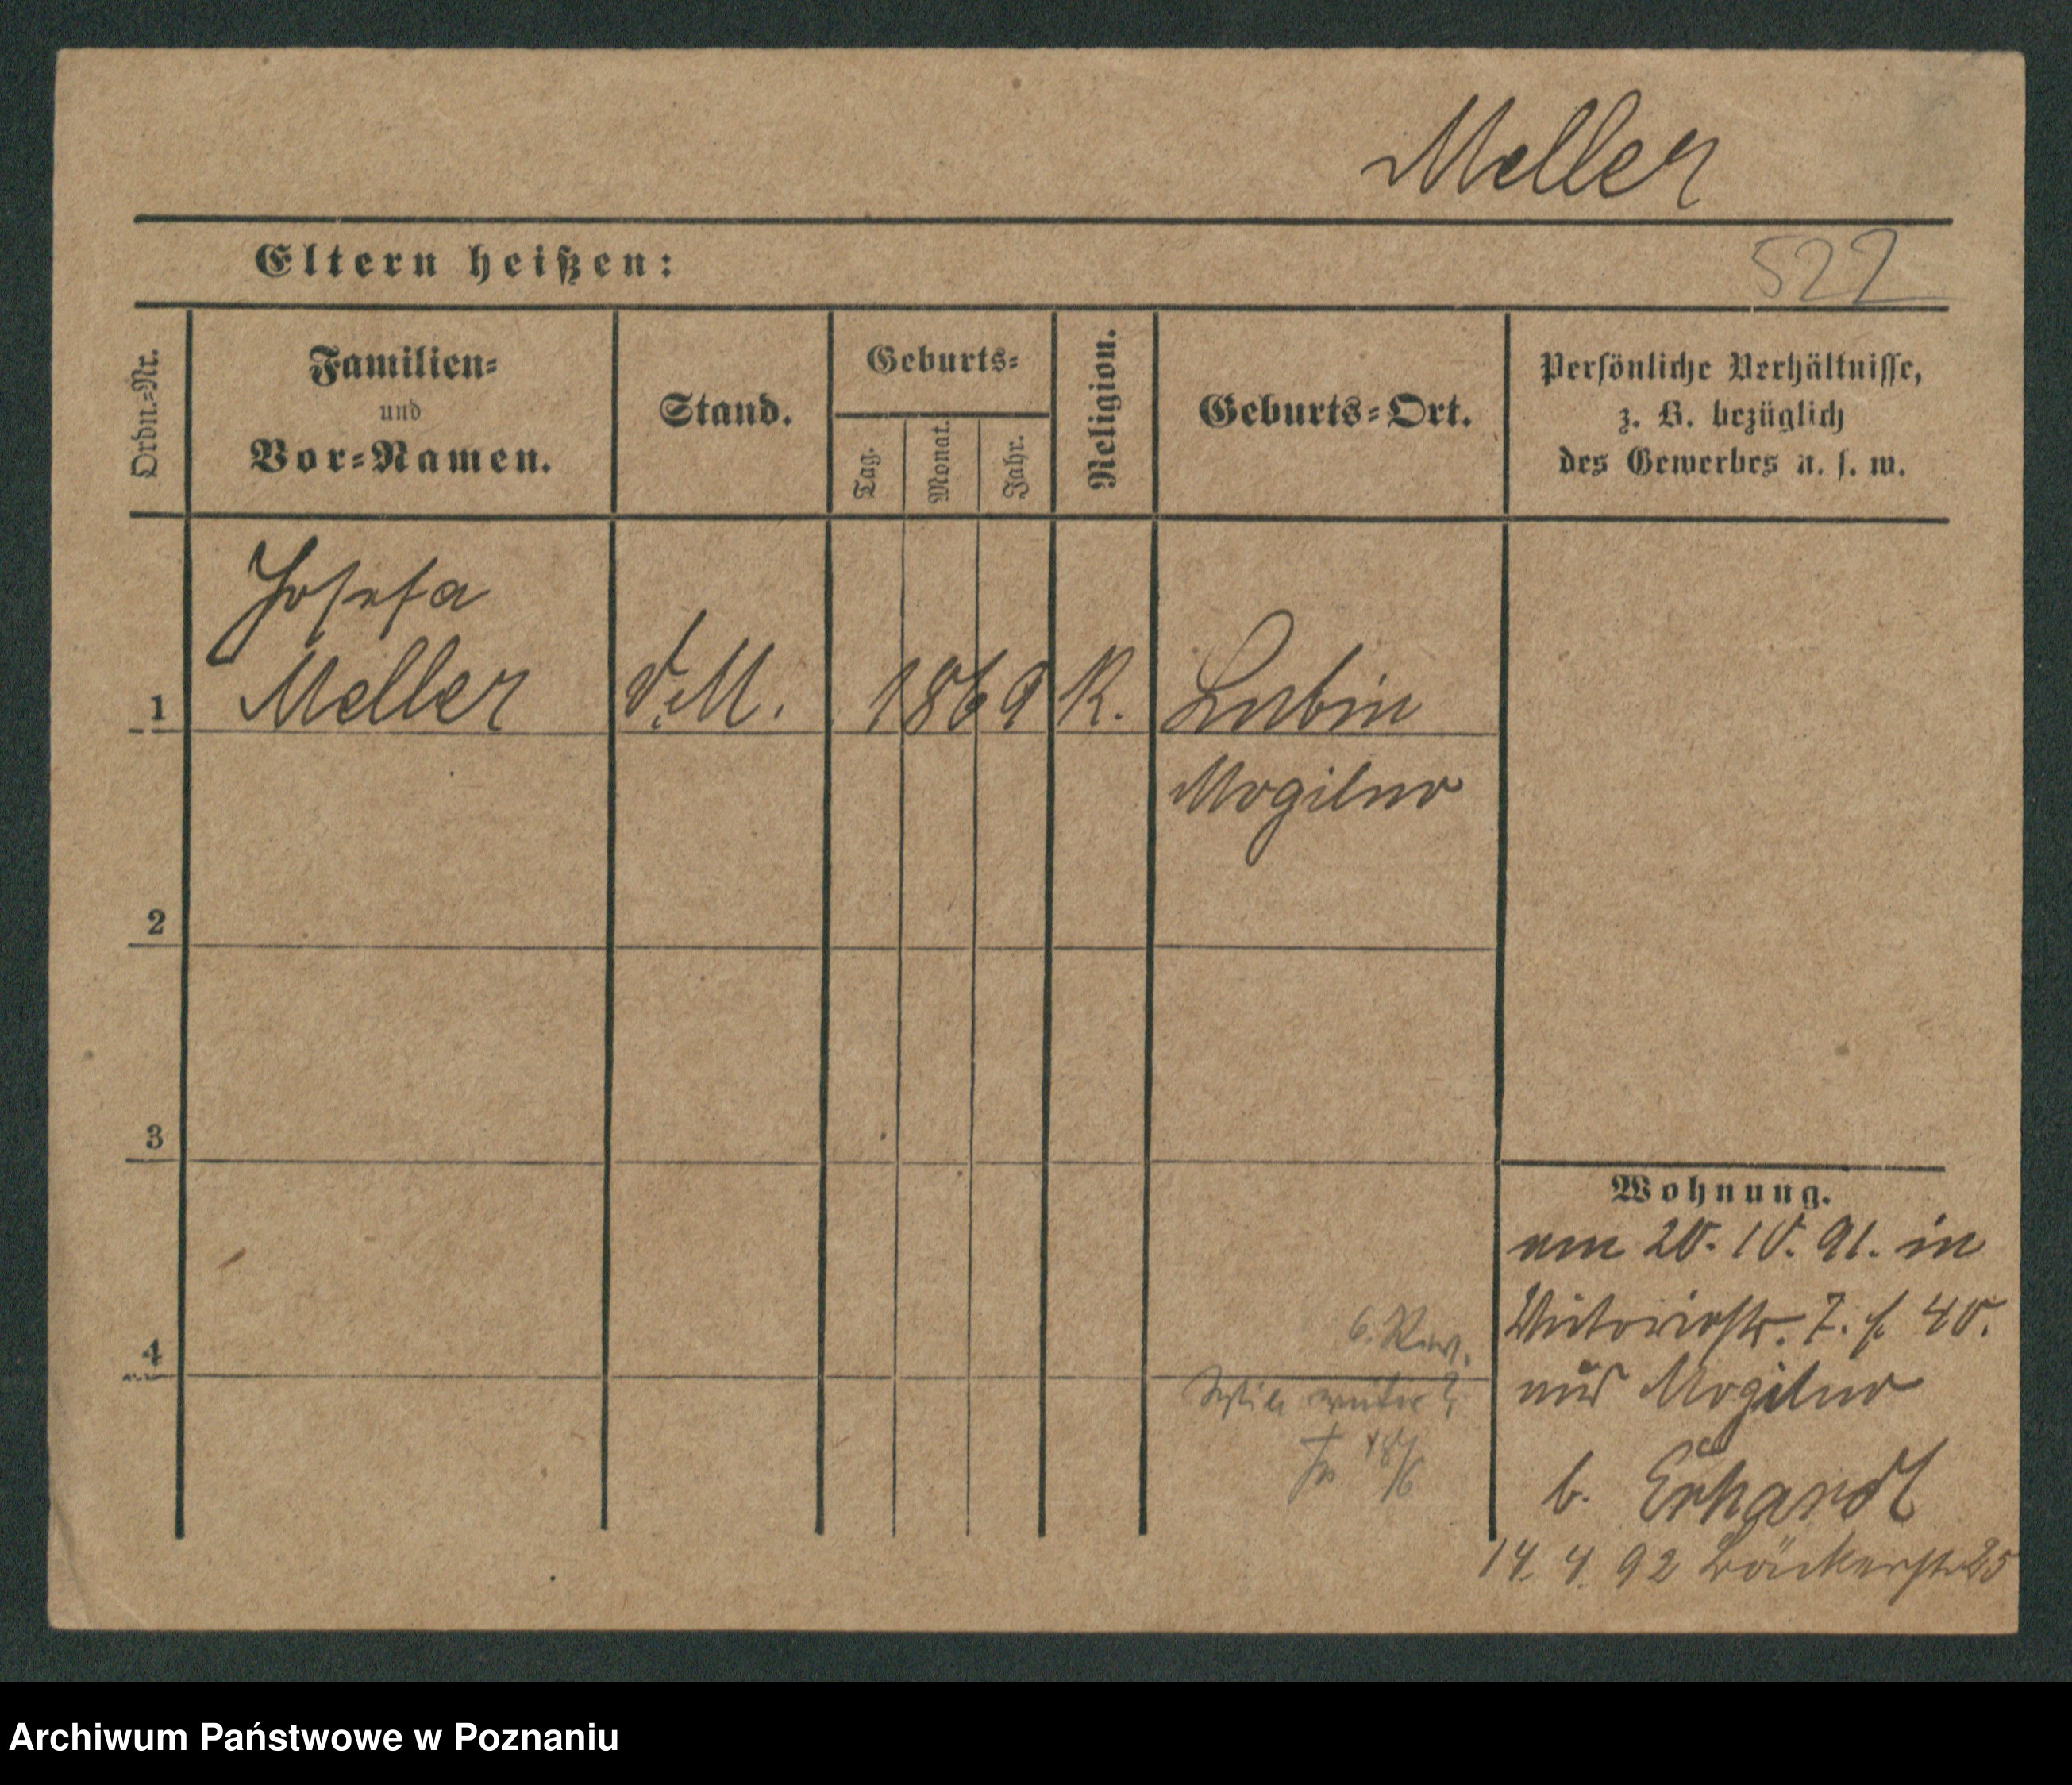 Meller
Eltern heißen:
522
Ordn.-Nr.
Familien-
und
Vor-Namen.
Stand.
Geburts-
Tag.
Monat.
Jahr.
Religion.
Geburts-Ort.
Persönliche Verhältnisse,
z. B. bezüglich
des Gewerbes u. s. w.
Josefa
Meller
d. M.
1869
K.
Lubin
1
Mogilno
2
3
4
Wohnung.
am 20. 10. 91. in
Victoriastr. 7. f. 40.
aus Mogilno
b. Erhardt
14. 4. 92 Bäckerstr 25
6. Rev.
weiter?
18/6
Archiwum Państwowe w Poznaniu